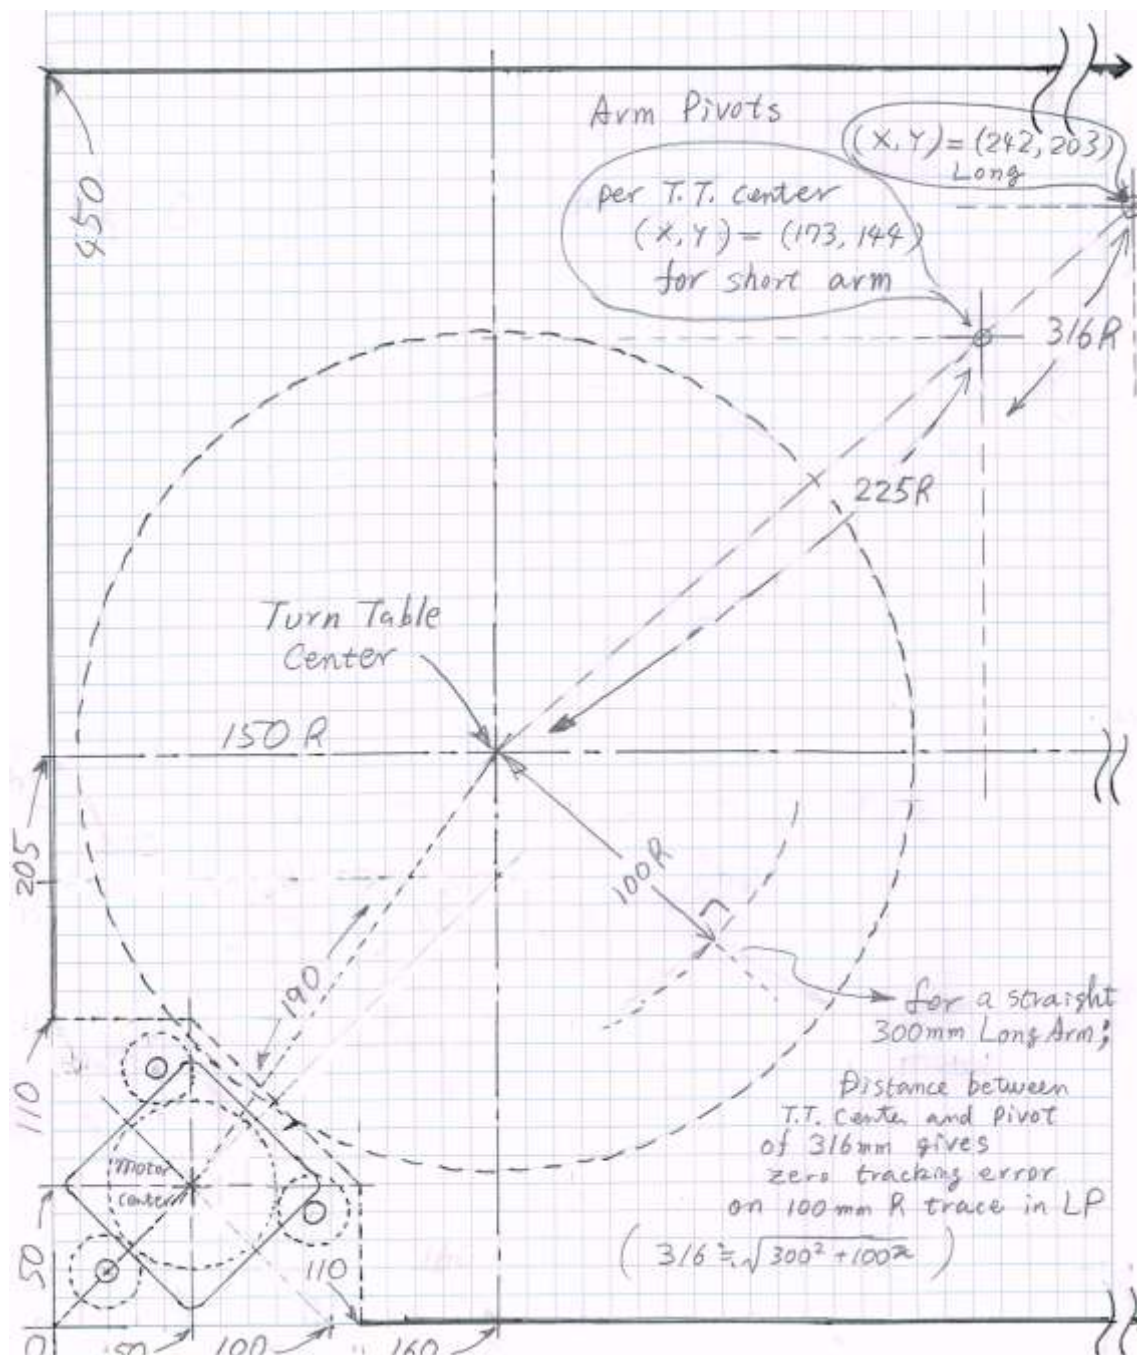 Arm Pivots
(X,Y)=(242,203)
Long
per T.T. center
(X,Y)=(173,144)
for short arm
450
316R
225R
Turn Table
Center
150R
205
100R
190
for a straight
300mm Long Arm;
110
Distance between
T.T. Center and Pivot
of 316mm gives
zero tracking error
on 100mm R trace in LP
(316≒√300²+100²)
Motor
center
50
110
0
50
100
160